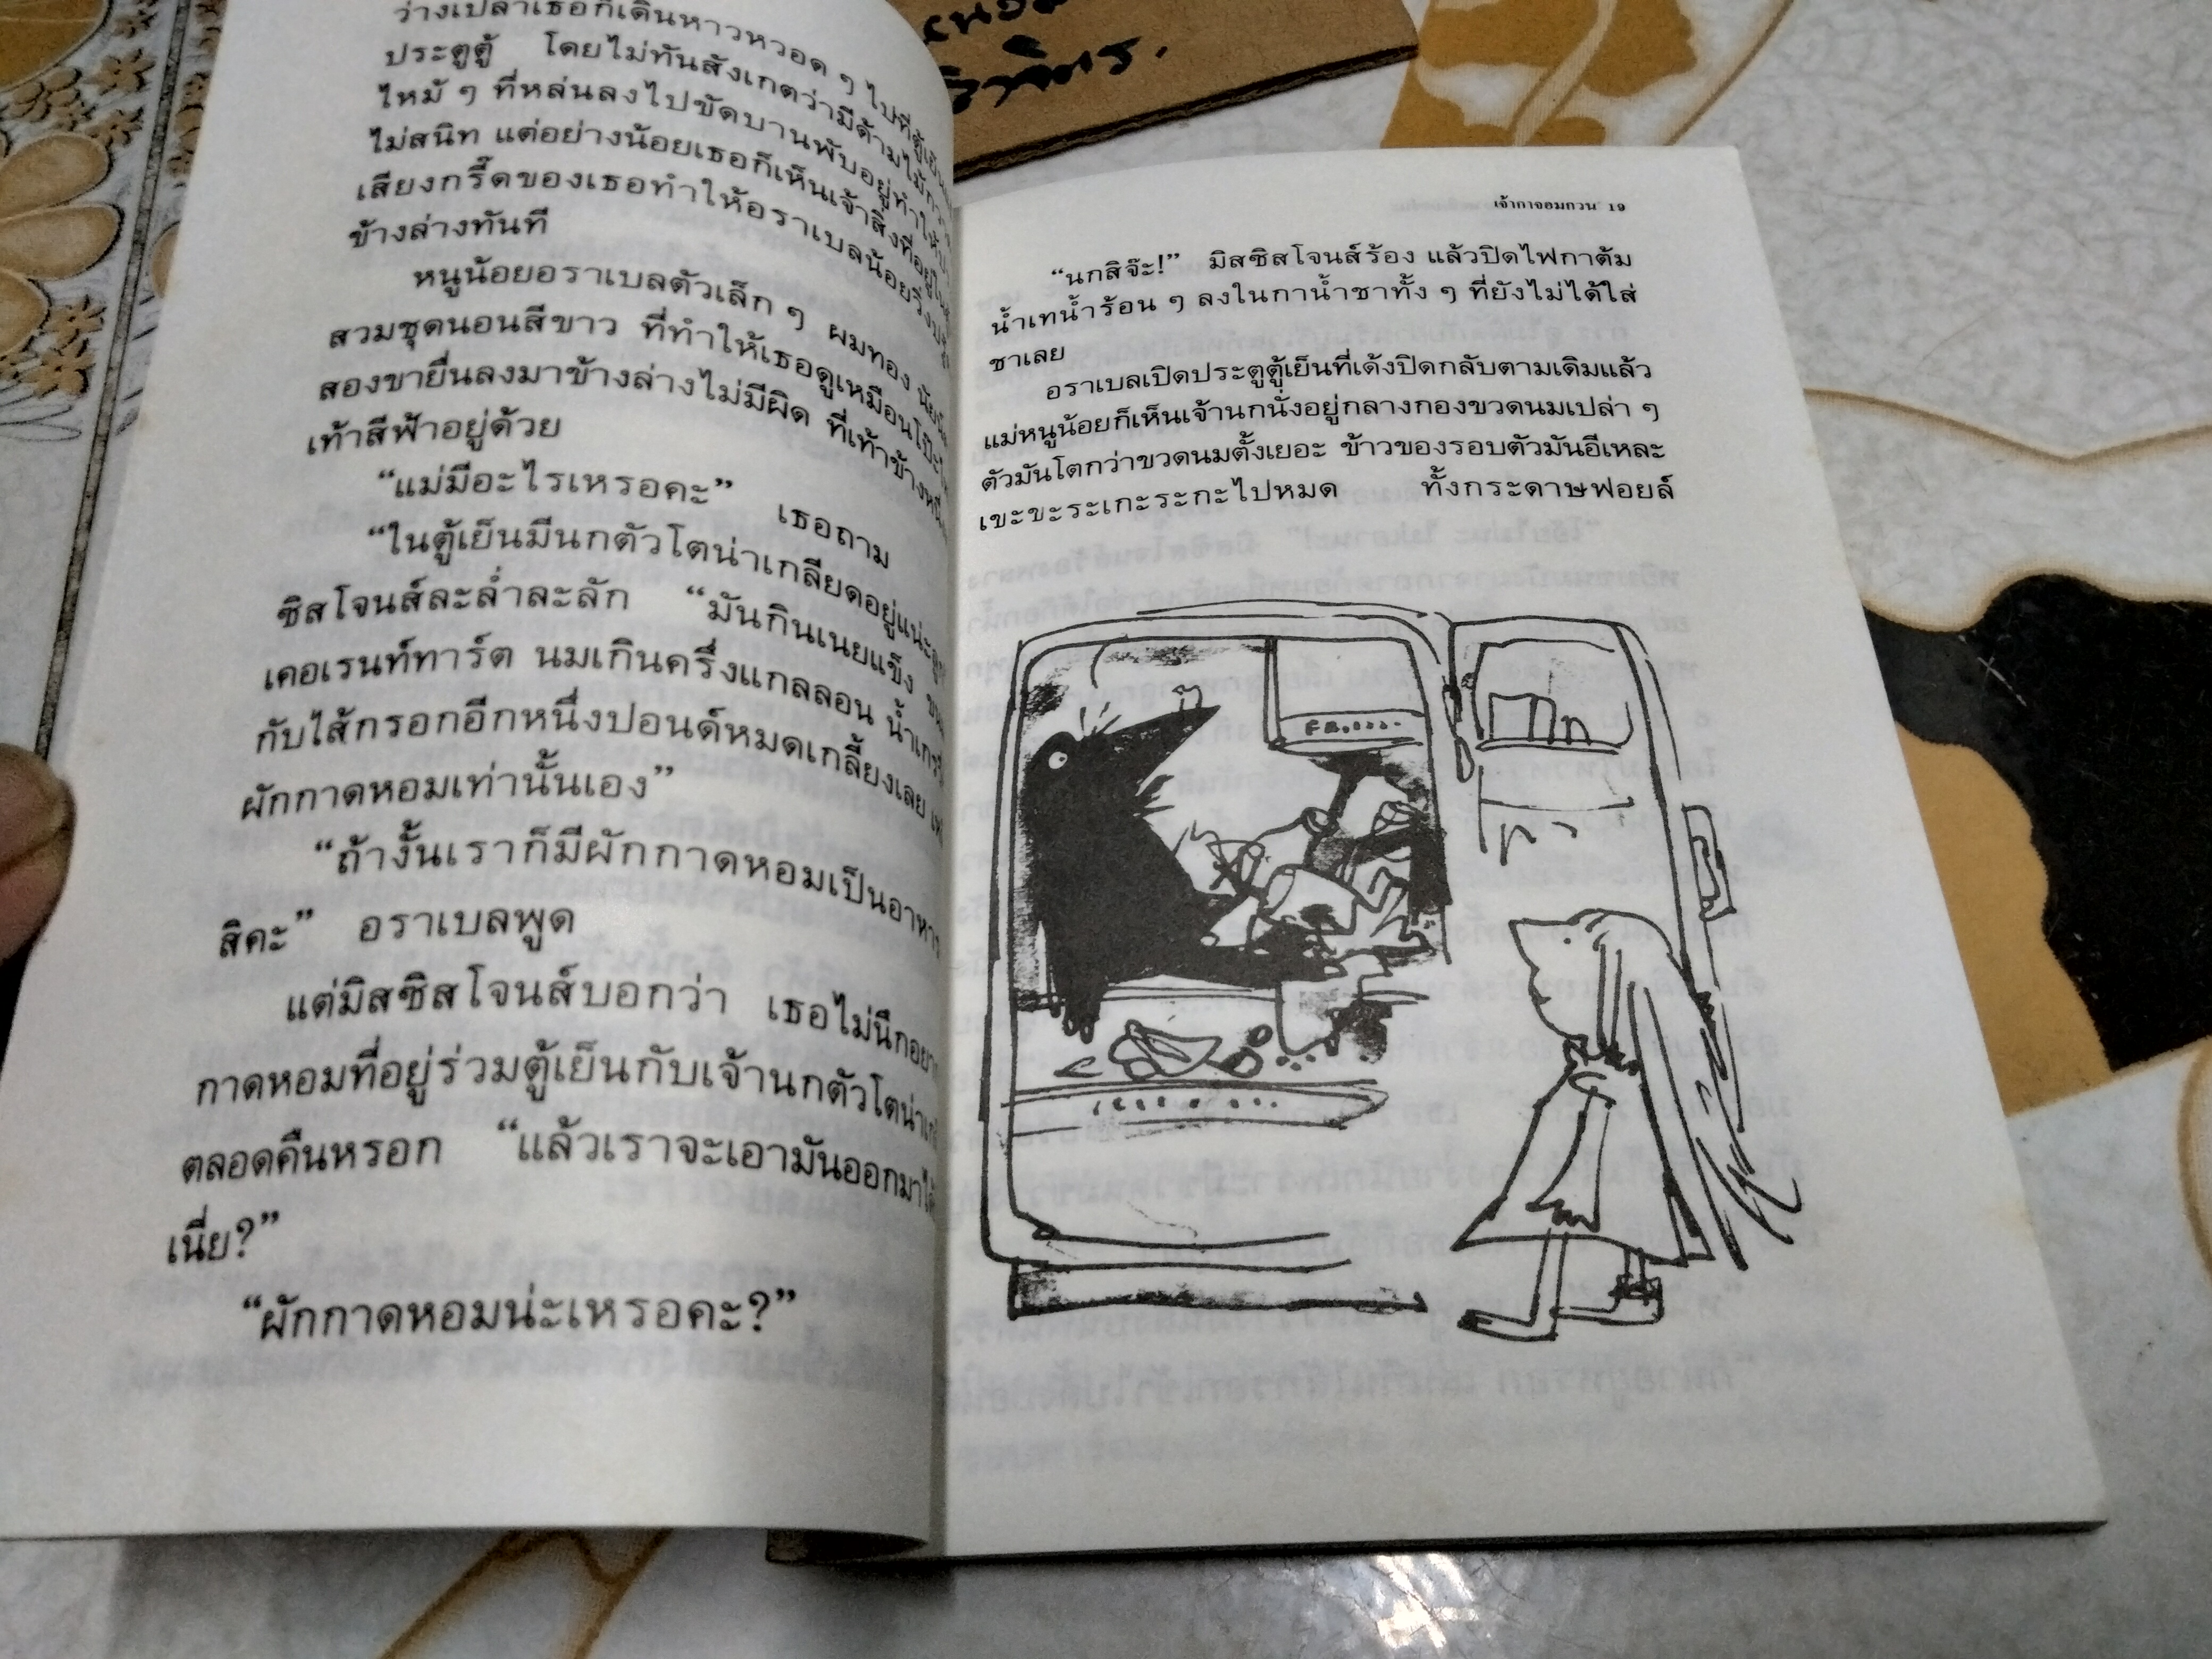 ว่างเปล่าเธอก็เดินหาวหวอด ๆ ไปที่ตู้เย็น
ประตูตู้ โดยไม่ทันสังเกตว่ามีด้ามไม้กวาด
ไหม้ ๆ ที่หล่นลงไปขัดบานพับอยู่ทำให้
ไม่สนิท แต่อย่างน้อยเธอก็เห็นเจ้าสิ่งที่อยู่ใน
เสียงกรี๊ดของเธอทำให้อราเบลน้อยวิ่ง
ข้างล่างทันที
หนูน้อยอราเบลตัวเล็ก ๆ ผมทอง
สวมชุดนอนสีขาว ที่ทำให้เธอดูเหมือน
สองขายื่นลงมาข้างล่างไม่มีผิด ที่เท้าข้างหนึ่ง
เท้าสีฟ้าอยู่ด้วย
“แม่มีอะไรเหรอคะ” เธอถาม
“ในตู้เย็นมีนกตัวโตน่าเกลียดอยู่แน่ะ
ซิสโจนส์ละล่ำละลัก “มันกินเนยแข็ง
เคอเรนท์ทาร์ต นมเกินครึ่งแกลลอน
กับไส้กรอกอีกหนึ่งปอนด์หมดเกลี้ยงเลย
ผักกาดหอมเท่านั้นเอง”
“ถ้างั้นเราก็มีผักกาดหอมเป็นอาหาร
สิคะ” อราเบลพูด
แต่มิสซิสโจนส์บอกว่า เธอไม่นึกอยาก
กาดหอมที่อยู่ร่วมตู้เย็นกับเจ้านกตัวโต
ตลอดคืนหรอก “แล้วเราจะเอามันออกมา
เนี่ย?”
“ผักกาดหอมน่ะเหรอคะ?”
เจ้ากาจอมกวน 19
“นกสิจ๊ะ!” มิสซิสโจนส์ร้อง แล้วปิดไฟกาต้ม
น้ำเทน้ำร้อน ๆ ลงในกาน้ำชาทั้ง ๆ ที่ยังไม่ได้ใส่
ชาเลย
อราเบลเปิดประตูตู้เย็นที่เด้งปิดกลับตามเดิมแล้ว
แม่หนูน้อยก็เห็นเจ้านกนั่งอยู่กลางกองขวดนมเปล่า ๆ
ตัวมันโตกว่าขวดนมตั้งเยอะ ข้าวของรอบตัวมันอีเหละ
เขะขะระเกะระกะไปหมด ทั้งกระดาษฟอยล์